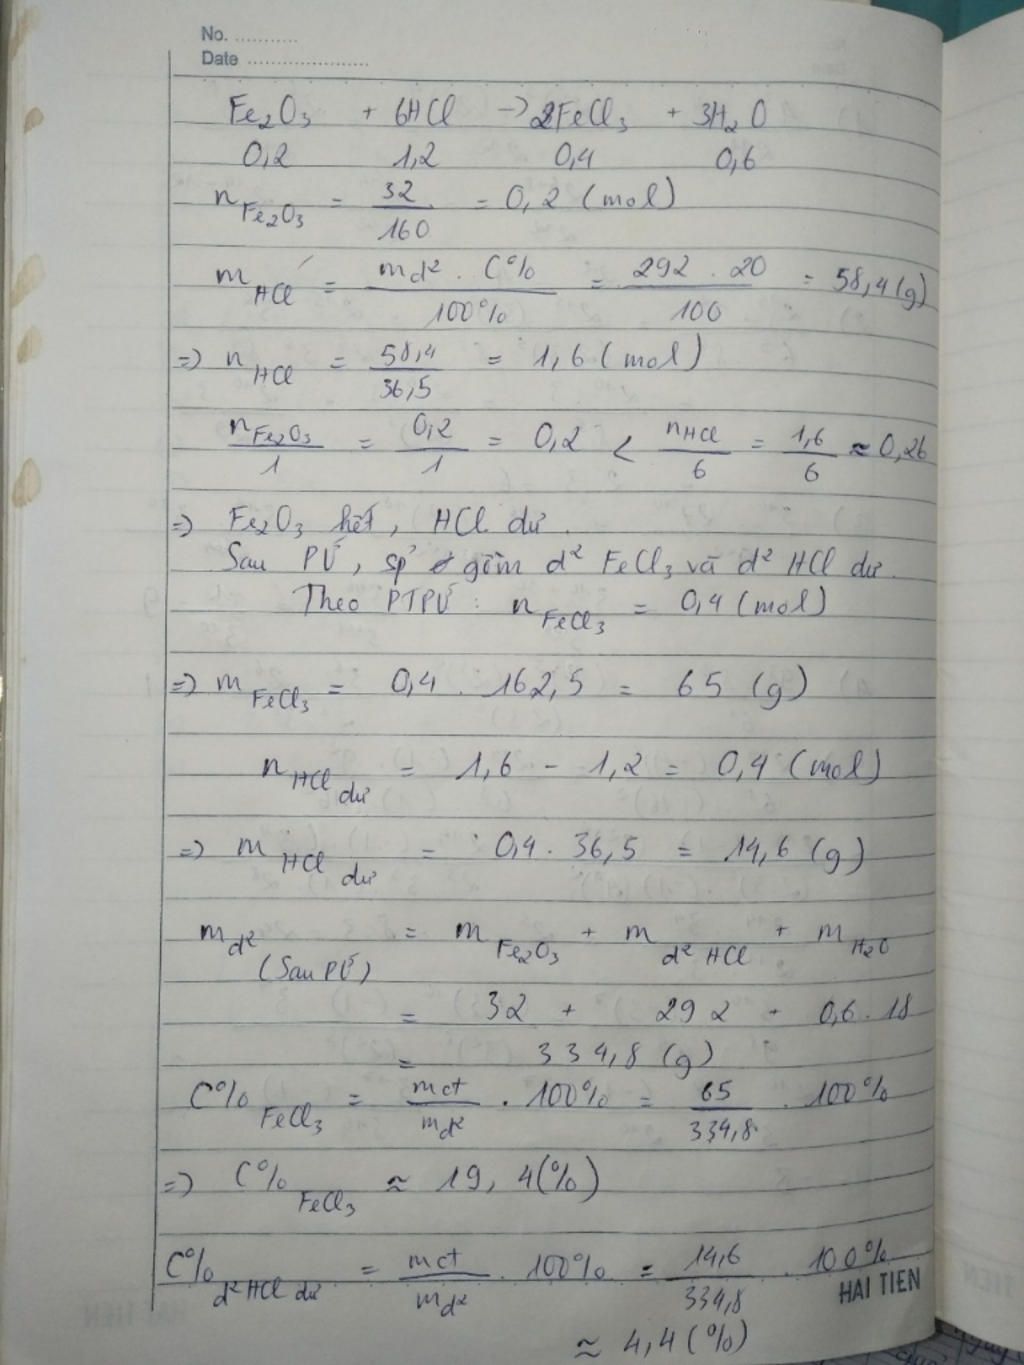 No. ...........
Date .....................
Fe₂O₃ + 6HCl → 2FeCl₃ + 3H₂O
0,2 1,2 0,4 0,6
n Fe₂O₃ = 32/160 = 0,2 (mol)
m HCl = md² . C%/100% = 292 . 20/100 = 58,4 (g)
=> n HCl = 58,4/36,5 = 1,6 (mol)
nFe₂O₃/1 = 0,2/1 = 0,2 < nHCl/6 = 1,6/6 ≈ 0,26
=> Fe₂O₃ hết, HCl dư.
Sau PƯ, sp gồm d² FeCl₃ và d² HCl dư.
Theo PTPƯ : n FeCl₃ = 0,4 (mol)
=> m FeCl₃ = 0,4 . 162,5 = 65 (g)
n HCl dư = 1,6 - 1,2 = 0,4 (mol)
=> m HCl dư = 0,4 . 36,5 = 14,6 (g)
m d² (Sau PƯ) = m Fe₂O₃ + m d² HCl + m H₂O
= 32 + 292 + 0,6 . 18
= 334,8 (g)
C% FeCl₃ = mct/md² . 100% = 65/334,8 . 100%
=> C% FeCl₃ ≈ 19,4(%)
C% d² HCl dư = mct/md² . 100% = 14,6/334,8 . 100%
HAI TIEN
≈ 4,4 (%)